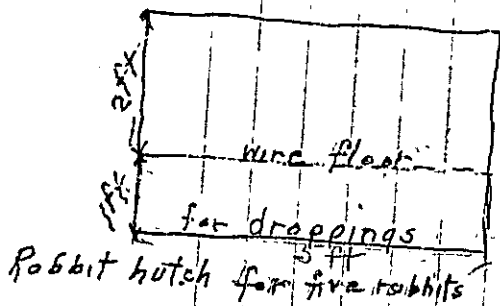 2 ft
wire floor
1 ft
for droppings
5 ft
Rabbit hutch for five rabbits